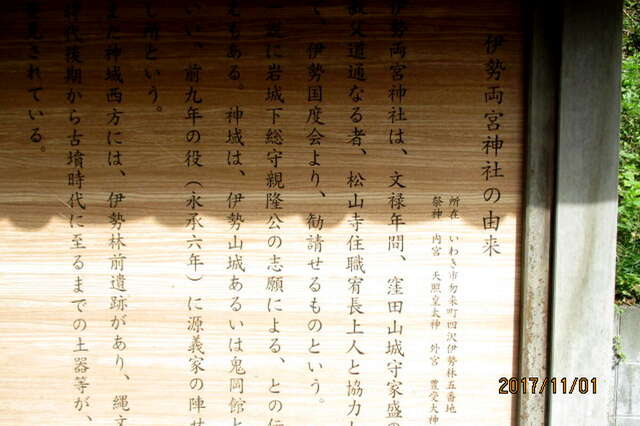 伊勢両宮神社の由来
所在 いわき市勿来町四沢伊勢林五番地
祭神 内宮 天照皇大神 外宮 豊受大神
伊勢両宮神社は、文禄年間、窪田山城守家盛の
秩父道通なる者、松山寺住職宥長上人と協力し
て、伊勢国度会より、勧請せるものという。
一説に岩城下総守親隆公の志願による、との伝
えもある。神域は、伊勢山城あるいは鬼岡館と
いい、前九年の役（永承六年）に源義家の陣せ
し所という。
また神城西方には、伊勢林前遺跡があり、縄文
時代後期から古墳時代に至るまでの土器等が、
発見されている。
2017/11/01